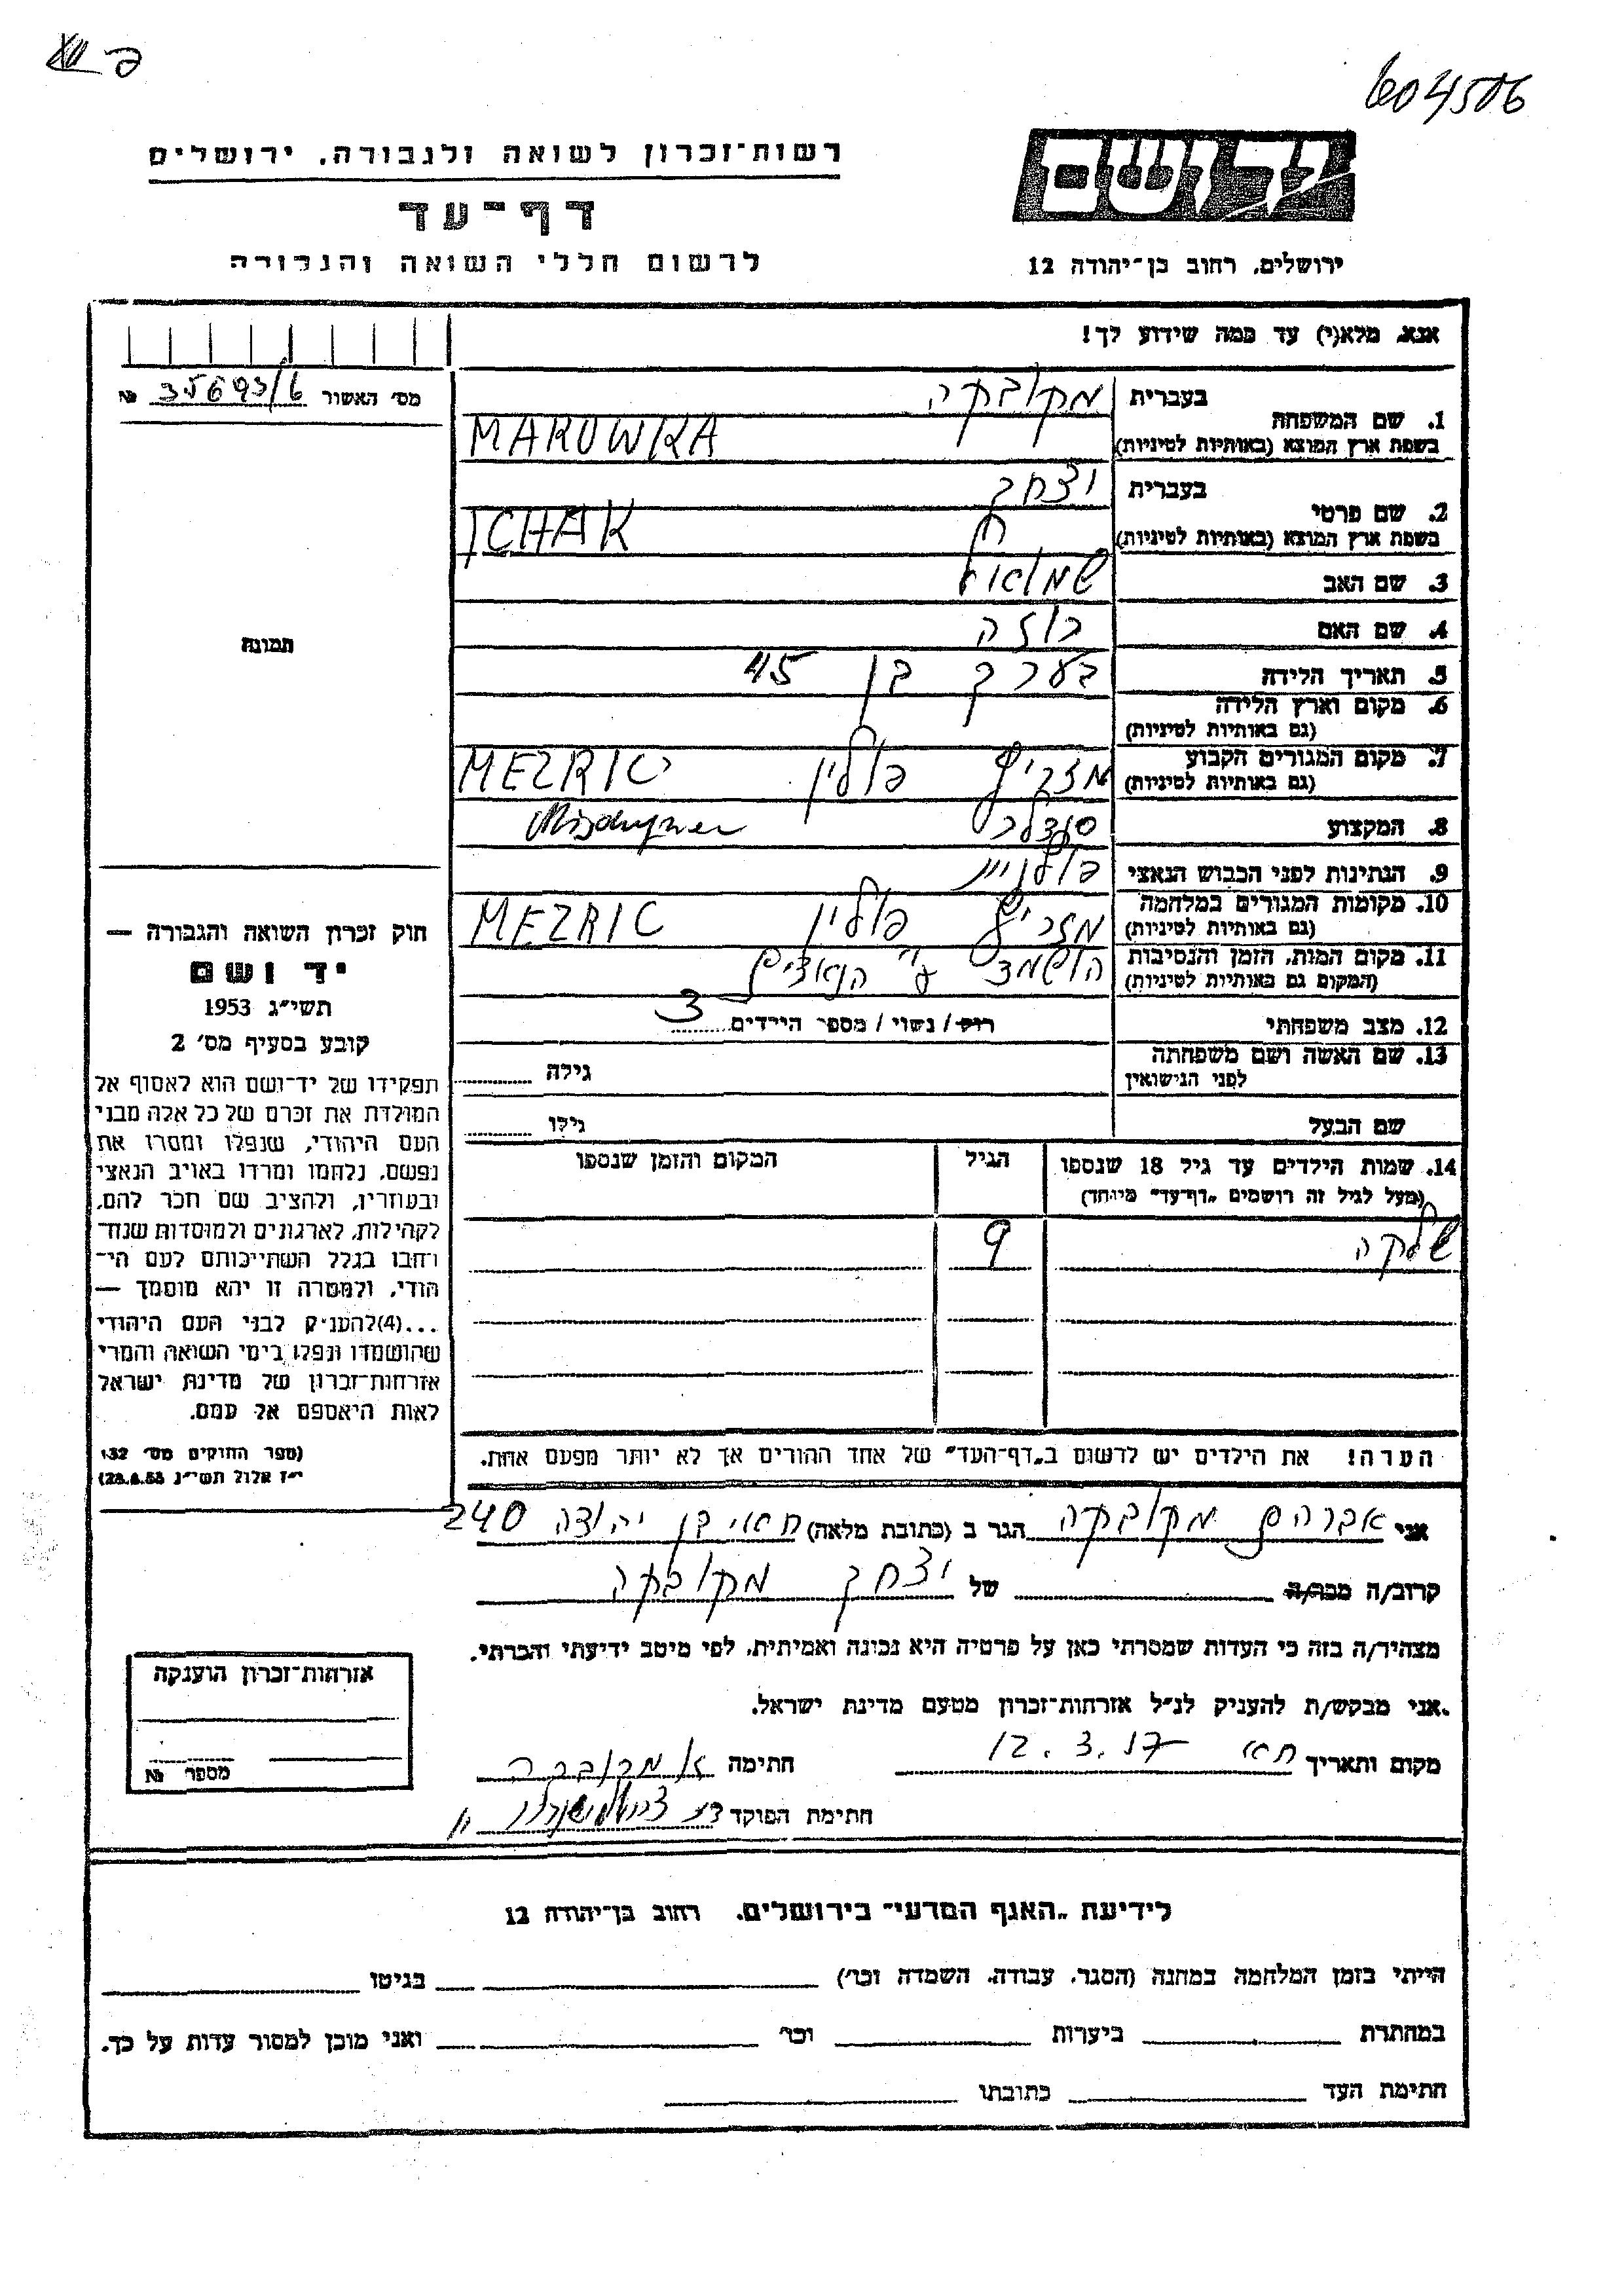 604506
רשות־זכרון לשואה ולגבורה. ירושלים
ידושם
דף־עד
לרשום חללי השואה והגבורה
ירושלים. רחוב בן־יהודה 12
אנא. מלא(י) עד כמה שידוע לך!
מס׳ האשור 35693/6 №
1. שם המשפחה
בעברית מקובקה
בשפת ארץ המוצא (באותיות לטיניות) MAKOWKA
2. שם פרטי
בעברית יצחק
בשפת ארץ המוצא (באותיות לטיניות) ICHAK
3. שם האב שמואל
4. שם האם רוזה
תמונה
5. תאריך הלידה בערך בן 45
6. מקום וארץ הלידה
(גם באותיות לטיניות)
7. מקום המגורים הקבוע מזריץ פולין MEZRIC
(גם באותיות לטיניות)
8. המקצוע סנדלר
9. הנתינות לפני הכבוש הנאצי פולנית
10. מקומות המגורים במלחמה מזריץ פולין MEZRIC
(גם באותיות לטיניות)
11. מקום המות. הזמן והנסיבות הושמד ע״י הנאצים
(המקום גם באותיות לטיניות)
12. מצב משפחתי רוק / נשוי / מספר הילדים 3
13. שם האשה ושם משפחתה
לפני הנישואין גילה
שם הבעל גילו
14. שמות הילדים עד גיל 18 שנספו הגיל המקום והזמן שנספו
(מעל לגיל זה רושמים „דף־עד״ מיוחד)
שלקה 9
הערה! את הילדים יש לרשום ב„דף־העד״ של אחד ההורים אך לא יותר מפעם אחת.
חוק זכרון השואה והגבורה —
יד ושם
תשי״ג 1953
קובע בסעיף מס׳ 2
תפקידו של יד־ושם הוא לאסוף אל
המולדת את זכרם של כל אלה מבני
העם היהודי, שנפלו ומסרו את
נפשם. נלחמו ומרדו באויב הנאצי
ובעוזריו, ולהציב שם וזכר להם,
לקהילות, לארגונים ולמוסדות שנח־
רחבו בגלל השתייכותם לעם הי־
הודי. ולמטרה זו יהא מוסמך —
...(4)להעניק לבני העם היהודי
שהושמדו ונפלו בימי השואה והמרי
אזרחות־זכרון של מדינת ישראל
לאות היאספם אל עמם.
(ספר החוקים מס׳ 132
י״ז אלול תשי״ג 28.8.53)
אני אברהם מקובקה הגר ב (כתובת מלאה) בן יהודה 240
קרוב/ה מכר/ה של יצחק מקובקה
מצהיר/ה בזה כי העדות שמסרתי כאן על פרטיה היא נכונה ואמיתית. לפי מיטב ידיעתי והכרתי.
אני מבקש/ת להעניק לנ״ל אזרחות־זכרון מטעם מדינת ישראל.
מקום ותאריך 12.3.57 חתימה א מקובקה
חתימת הפוקד
אזרחות־זכרון הוענקה
מספר №
לידיעת „האגף המדעי״ בירושלים. רחוב בן־יהודה 12
הייתי בזמן המלחמה במחנה (הסגר. עבודה. השמדה וכו׳) בגיטו
במחתרת ביערות וכו׳ ואני מוכן למסור עדות על כך.
חתימת העד כתובתו